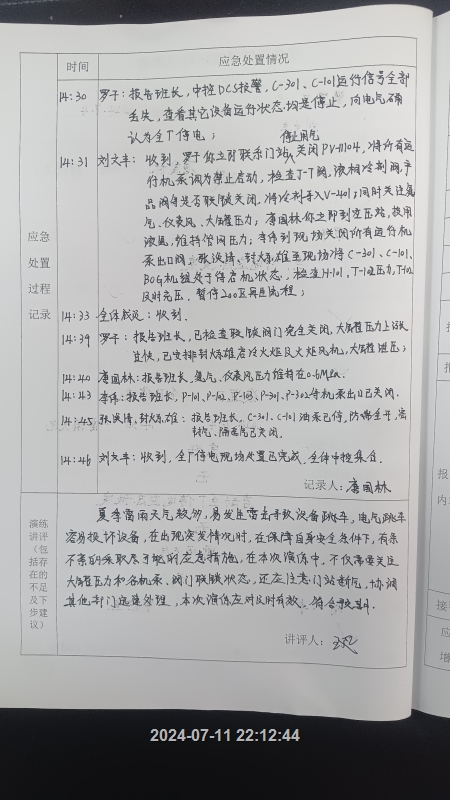 时间 应急处置情况
14:30 罗子：报告班长，中控DCS报警，C-301、C-101运行信号全部
丢失，查看其它设备运行状态均是停止，向电气确
认为全厂停电；
停止用气
14:31 刘文丰：收到，罗子你立即联系门站，关闭PV-11104，将所有运
行机泵调为禁止启动，检查J-T阀，液相冷剂阀，产
品阀等是否联锁关闭，将冷剂导入V-401；同时关注氮
气、仪表风、大罐压力；唐国林你立即到空压站，投用
液氮，维持管网压力；李伟到现场关闭所有运行机
泵出口阀，张洪涛、封大雄在现场将C-301、C-101、
BOG机组处于待启机状态，检查H-101、T-102压力，T-102
及时充压，暂停200区再生流程；
14:33 全体成员：收到。
14:39 罗子：报告班长，已检查联锁阀门完全关闭，大罐压力上涨
14:40 唐国林：报告班长，氮气、仪表风压力维持在0.6Mpa.
14:43 李伟：报告班长，P-101、P-102、P-103、P-301、P-302等机泵出口已关闭.
14:45 张洪涛、封大雄：报告班长，C-301、C-101油泵已停，防喘全开，密
封气、隔离气已关闭.
14:46 刘文丰：收到，全厂停电现场处置已完成，全体中控集合.
应急
处置
过程
记录
记录人：唐国林
夏季雷雨天气较多，易发生雷击导致设备跳车，电气跳车
容易损坏设备，在出现突发情况时，在保障自身安全条件下，有条
不紊的采取尽可能的应急措施，在本次演练中，不仅需要关注
大罐压力和各机泵、阀门联锁状态，还应注意门站断气，协调
其他部门迅速处理，本次演练应对及时有效，符合预期.
演练
讲评
（包
括存
在的
不足
及下
步建
议）
讲评人：
2024-07-11 22:12:44